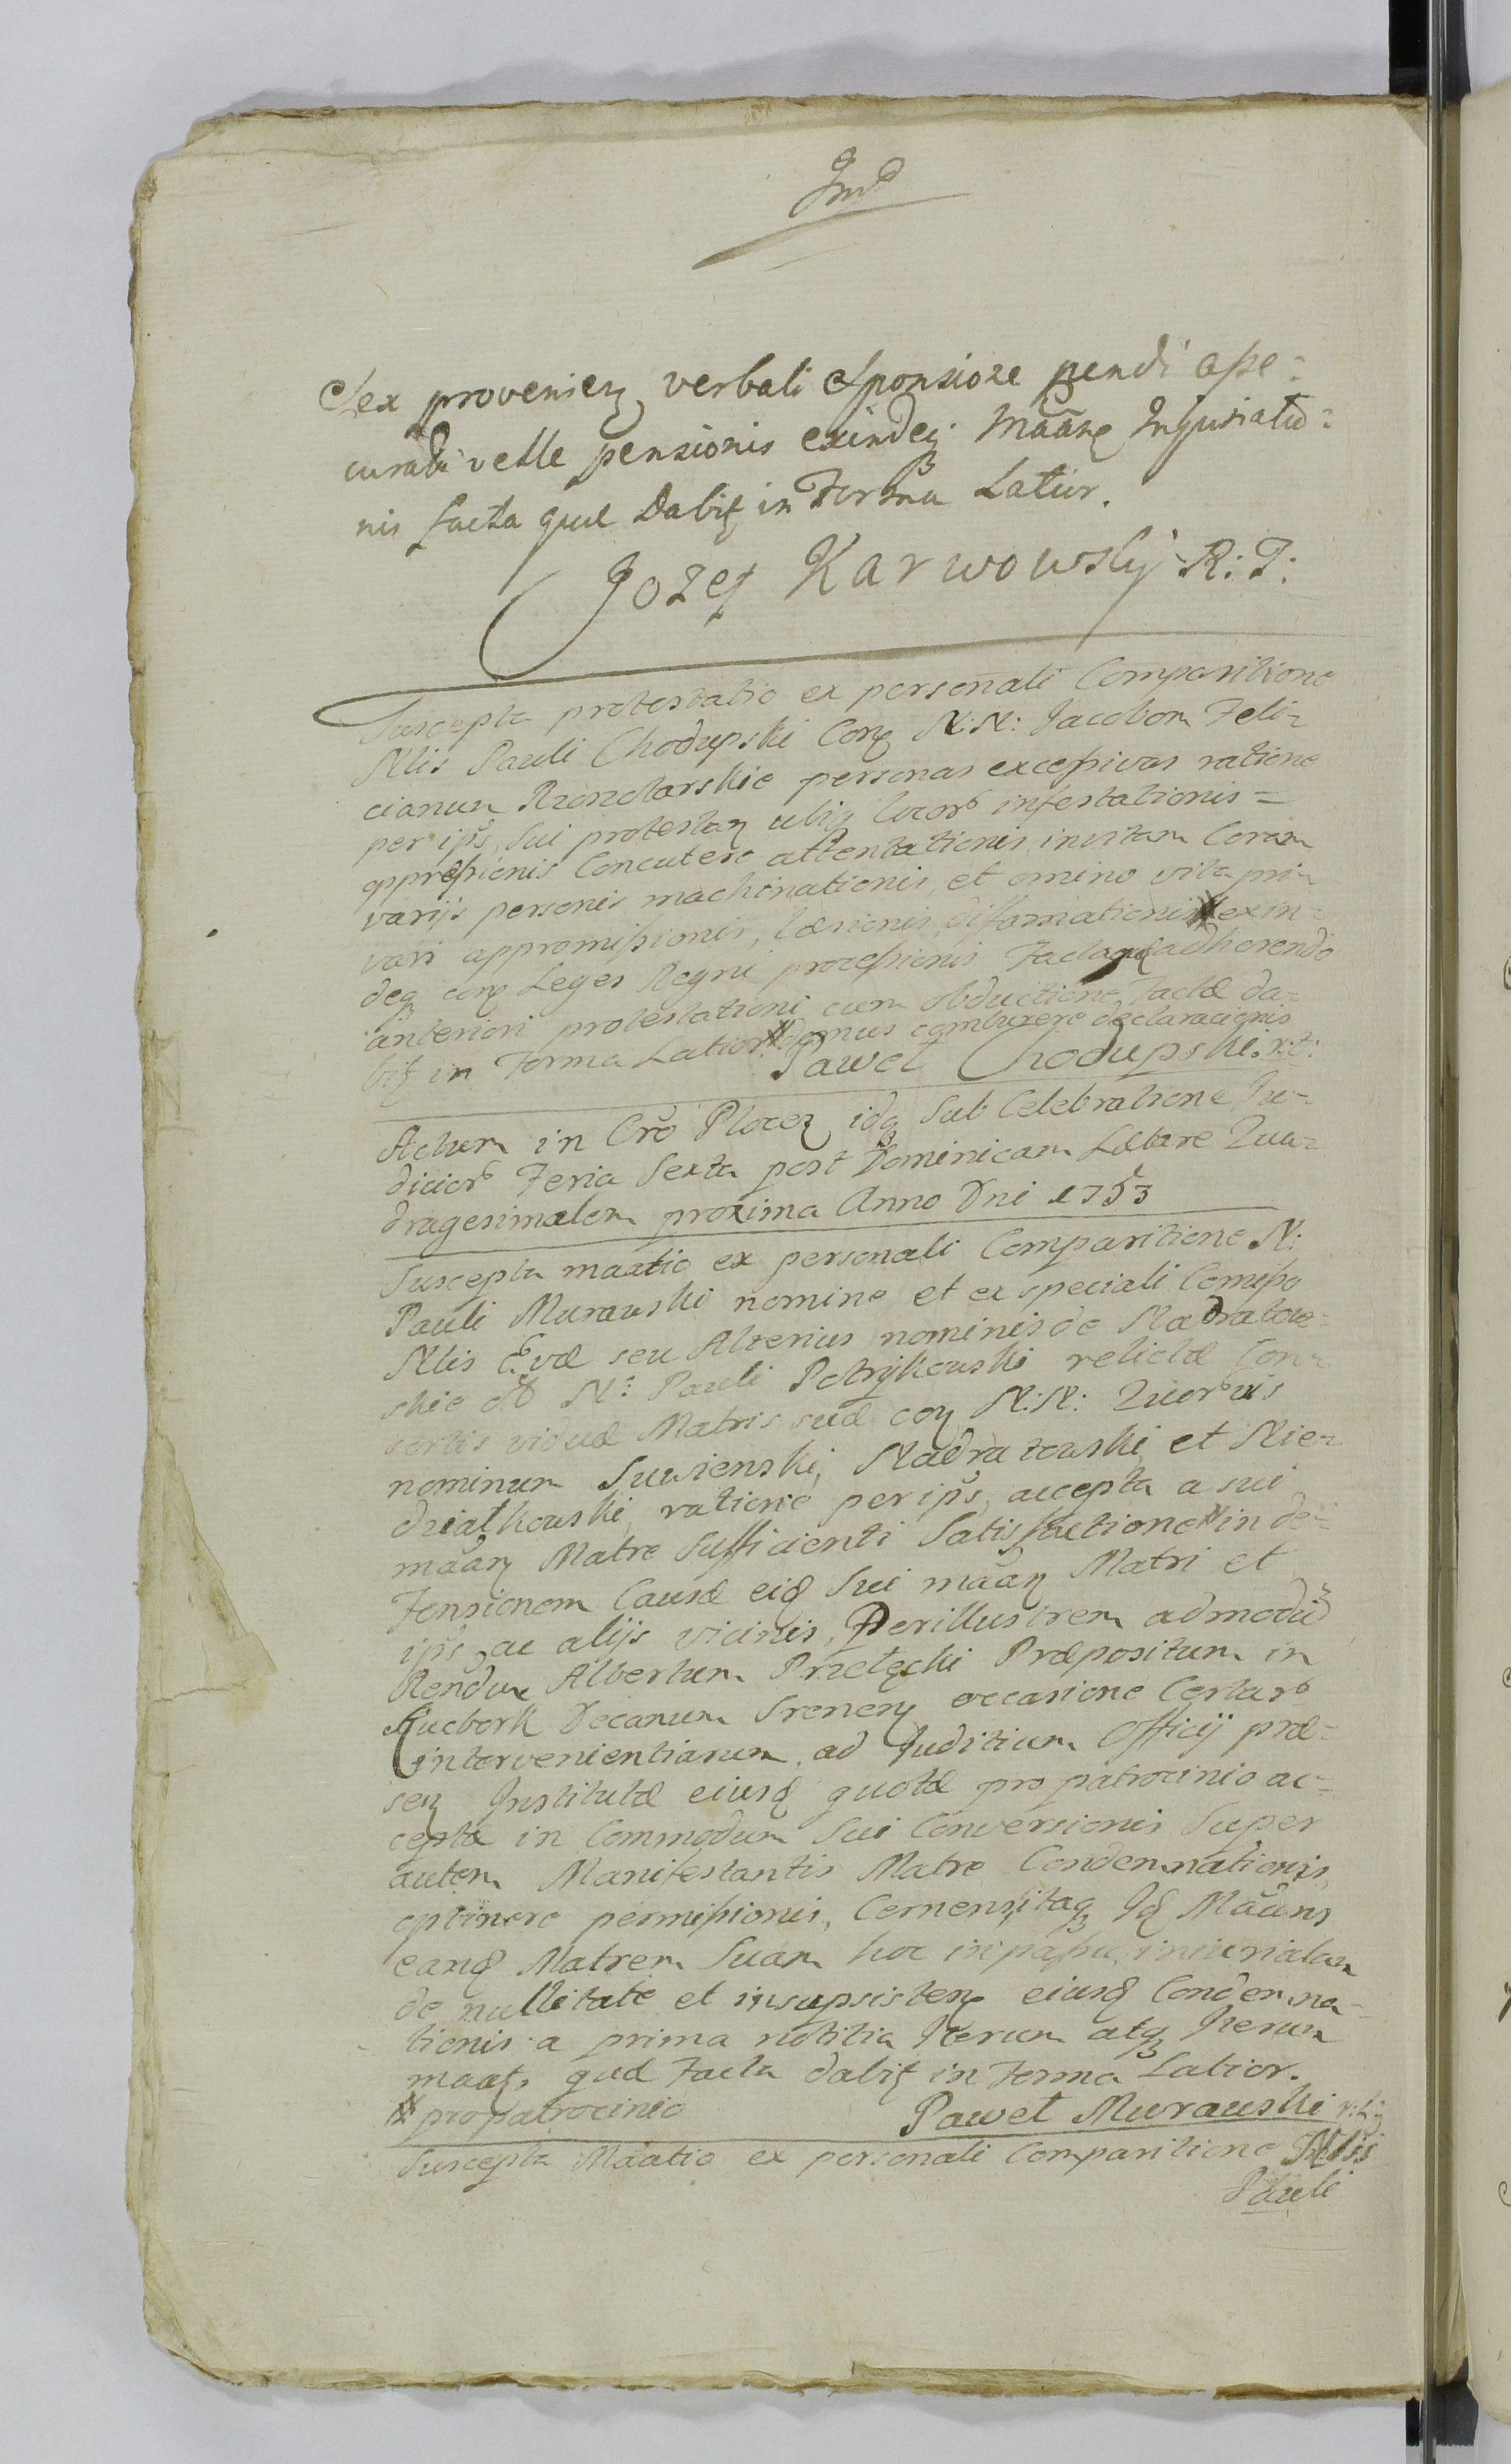 Sex provenien verbali Sponsione pendi asse=
curati velle pensionis exindeq Maane Injuriatio=
nis facta que Dabit in Forma Latior.
Jozef Karwowsky R: T:
Suscepta protestatio ex personali Comparitione
Nlis Pauli Chodupski Con N:N: Jacobom Feli=
cianum Rzonolarskie personas excessivas ratione
per ips, sui protestan ubiq locor infestationis=
oppressionis Concutere attentationis, invitam Coram
varijs personis machinationis, et omino vita pri=
vari appromissionis, læsionis, diffamationis exin=
deq con Leges Regni processionis Facta que adhorendo
anteriori protestationi cum obductione, Factæ da=
bit in Forma Latior. domus comburere declaracionis
Paweł Chodupski. r:t:
Actum in Cro Plocen idq Sub Celebratione Ju=
dicior Feria Sexta post Dominicam Lætare Qua=
dragesimalem proxima Anno Dni 1753
Suscepta maatio ex personali Comparitione N:
Pauli Murawski nomine et ex speciali Comisso
Nlis Evæ seu Alterius nominis de Nadratow=
skie N: Pauli Potrykowski relictæ Con=
sortis viduæ Matris suæ con N:N: Quorvis
nominum Suwienski, Nadratowski, et Nie=
działkowski, ratione per ips, accepta a sui
maan Matre Sufficienti Satisfactione in de=
Fensionem Causæ eid Sui maan Matri et
ips, ac alijs vicinis, Perillustrem admodu
Rendum Albertum Przełęcki Præpositum in
Kucbork Decanum Srenen occasione Certar
intervenientiarum, ad Juditium Officij præ=
sen Institutæ eiusd quotæ pro patrocinio ac=
ceptæ in Commodum Sui Conversionis Super
autem Manifestantis Matre Condemnationis,
optinere permissionis, Cernens, itaq Id Maans
eand Matrem Suam hoc in passu iniuriatam
de nullitate et insupsisten eiusd Condemna=
tionis a prima notitia Iterum atq Iterum
maat, quæ Facta dabit in Forma Latior.
pro patrocinio
Paweł Murawski
Suscepta Maatio ex personali Comparitione Nlis
Pauli